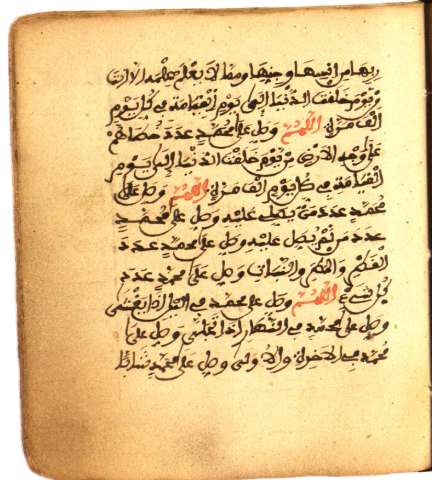 ربها من انسها وجنها ومما لا يعلم علمه الا انت
من يوم خلقت الدنيا الى يوم القيامة في كل يوم
الف مرة اللهم وصل على محمد عدد خطاهم
على وجه الارض من يوم خلقت الدنيا الى يوم
القيامة في كل يوم الف مرة اللهم وصل على
محمد عدد من يصلي عليه وصل على محمد
عدد من لم يصل عليه وصل على محمد عدد
القطر والمطر والنبات وصل على محمد عدد
كل شيء اللهم وصل على محمد في اليل اذا يغشى
وصل على محمد في النهار اذا تجلى وصل على
محمد في الاخرة والاولى وصل على محمد شابا